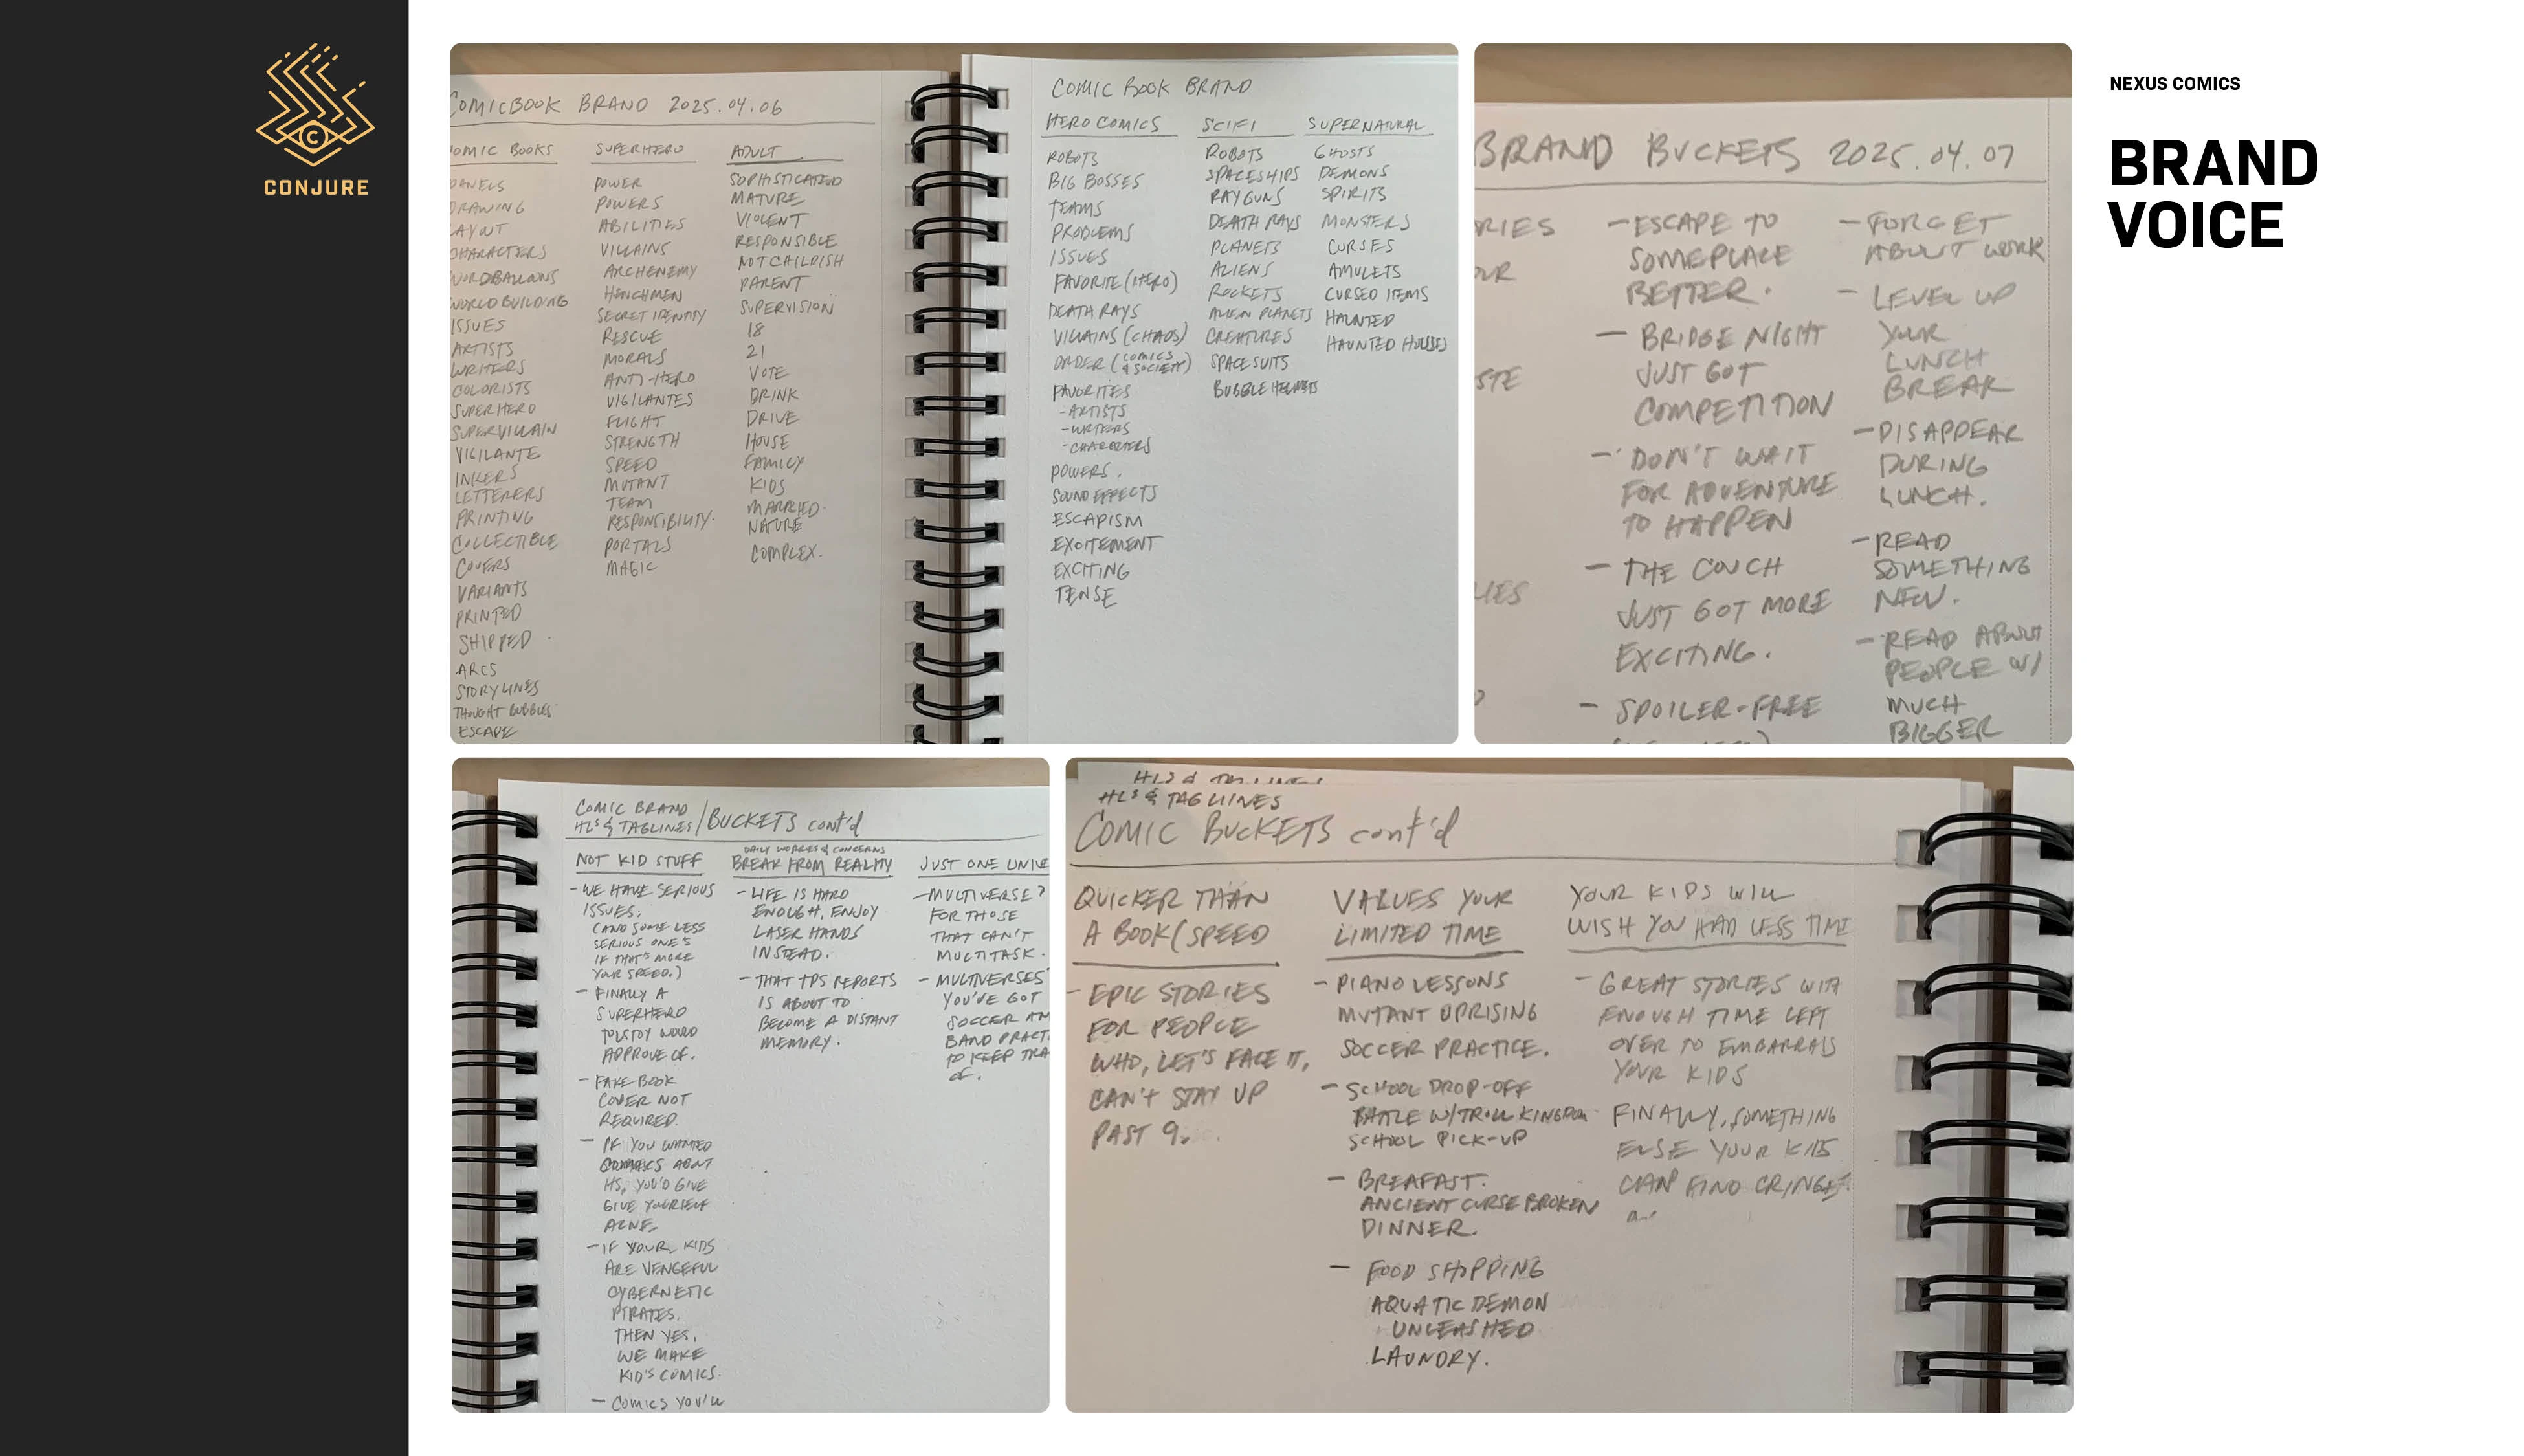 CONJURE
NEXUS COMICS
BRAND
VOICE
COMICBOOK BRAND 2025.04.06
COMIC BOOKS
PANELS
DRAWING
LAYOUT
CHARACTERS
WORDBALLOONS
WORLD BUILDING
ISSUES
ARTISTS
WRITERS
COLORISTS
SUPERHERO
SUPERVILLAIN
VIGILANTE
INKERS
LETTERERS
PRINTING
COLLECTIBLE
COVERS
VARIANTS
PRINTED
SHIPPED
ARCS
STORYLINES
THOUGHT BUBBLES
ESCAPE
SUPERHERO
POWER
POWERS
ABILITIES
VILLAINS
ARCHENEMY
HENCHMEN
SECRET IDENTITY
RESCUE
MORALS
ANTI-HERO
VIGILANTES
FLIGHT
STRENGTH
SPEED
MUTANT
TEAM
RESPONSIBILITY.
PORTALS
MAGIC
ADULT
SOPHISTICATED
MATURE
VIOLENT
RESPONSIBLE
NOT CHILDISH
PARENT
SUPERVISION
18
21
VOTE
DRINK
DRIVE
HOUSE
FAMILY
KIDS
MARRIED.
NATURE
COMPLEX.
COMIC BOOK BRAND
HERO COMICS
ROBOTS
BIG BOSSES
TEAMS
PROBLEMS
ISSUES
FAVORITE (HERO)
DEATH RAYS
VILLAINS (CHAOS)
ORDER (COMICS & SOCIETY)
FAVORITES
-ARTISTS
-WRITERS
-CHARACTERS
POWERS.
SOUND EFFECTS
ESCAPISM
EXCITEMENT
EXCITING
TENSE
SCIFI
ROBOTS
SPACESHIPS
RAYGUNS
DEATH RAYS
PLANETS
ALIENS
ROCKETS
ALIEN PLANETS
CREATURES
SPACESUITS
BUBBLE HELMETS
SUPERNATURAL
GHOSTS
DEMONS
SPIRITS
MONSTERS
CURSES
AMULETS
CURSED ITEMS
HAUNTED
HAUNTED HOUSES
BRAND BUCKETS 2025.04.07
RIES
OUR
STE
LIES
- ESCAPE TO
SOMEPLACE
BETTER.
- BRIDGE NIGHT
JUST GOT
COMPETITION
- DON'T WAIT
FOR ADVENTURE
TO HAPPEN
- THE COUCH
JUST GOT MORE
EXCITING.
- SPOILER-FREE
- FORGET
ABOUT WORK
- LEVEL UP
YOUR
LUNCH
BREAK
- DISAPPEAR
DURING
LUNCH.
- READ
SOMETHING
NEW.
- READ ABOUT
PEOPLE W/
MUCH
BIGGER
COMIC BRAND
HLS & TAGLINES / BUCKETS cont'd
NOT KID STUFF
- WE HAVE SERIOUS
ISSUES.
(AND SOME LESS
SERIOUS ONE'S
IF THAT'S MORE
YOUR SPEED.)
- FINALLY A
SUPERHERO
TOLSTOY WOULD
APPROVE OF.
- FAKE BOOK
COVER NOT
REQUIRED.
- IF YOU WANTED
COMICS ABOUT
HS, YOU'D GIVE
GIVE YOURSELF
ACNE.
- IF YOUR KIDS
ARE VENGEFUL
CYBERNETIC
PIRATES.
THEN YES,
WE MAKE
KID'S COMICS.
- COMICS YOU'LL
DAILY WORRIES & CONCERNS
BREAK FROM REALITY
- LIFE IS HARD
ENOUGH, ENJOY
LASER HANDS
INSTEAD.
- THAT TPS REPORTS
IS ABOUT TO
BECOME A DISTANT
MEMORY.
JUST ONE UNIVE
- MULTIVERSE?
FOR THOSE
THAT CAN'T
MULTITASK.
- MULTIVERSES
YOU'VE GOT
SOCCER AN
BAND PRACT
TO KEEP TRA
OF.
HLS & TAGLINES
HLS & TAGLINES
COMIC BUCKETS cont'd
QUICKER THAN
A BOOK (SPEED
- EPIC STORIES
FOR PEOPLE
WHO, LET'S FACE IT,
CAN'T STAY UP
PAST 9.
VALUES YOUR
LIMITED TIME
- PIANO LESSONS
MUTANT UPRISING
SOCCER PRACTICE.
- SCHOOL DROP-OFF
BATTLE W/ TROLL KINGDOM
SCHOOL PICK-UP
- BREAFAST.
ANCIENT CURSE BROKEN
DINNER.
- FOOD SHOPPING
AQUATIC DEMON
UNLEASHED
LAUNDRY.
YOUR KIDS WILL
WISH YOU HAD LESS TIME
- GREAT STORIES WITH
ENOUGH TIME LEFT
OVER TO EMBARRASS
YOUR KIDS
FINALLY, SOMETHING
ELSE YOUR KIDS
CAN FIND CRINGE